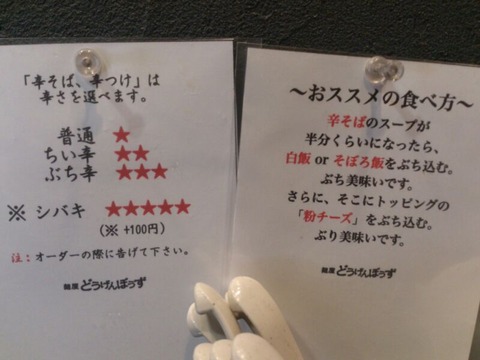 「辛そば、辛つけ」は
辛さを選べます。
普通 ★
ちい辛 ★★
ぶち辛 ★★★
※ シバキ ★★★★★
(※ +100円)
注：オーダーの際に告げて下さい。
麺屋 どうげんぼうず
～おススメの食べ方～
辛そばのスープが
半分くらいになったら、
白飯 or そぼろ飯をぶち込む。
ぶち美味いです。
さらに、そこにトッピングの
「粉チーズ」をぶち込む。
ぶり美味いです。
麺屋 どうげんぼうず